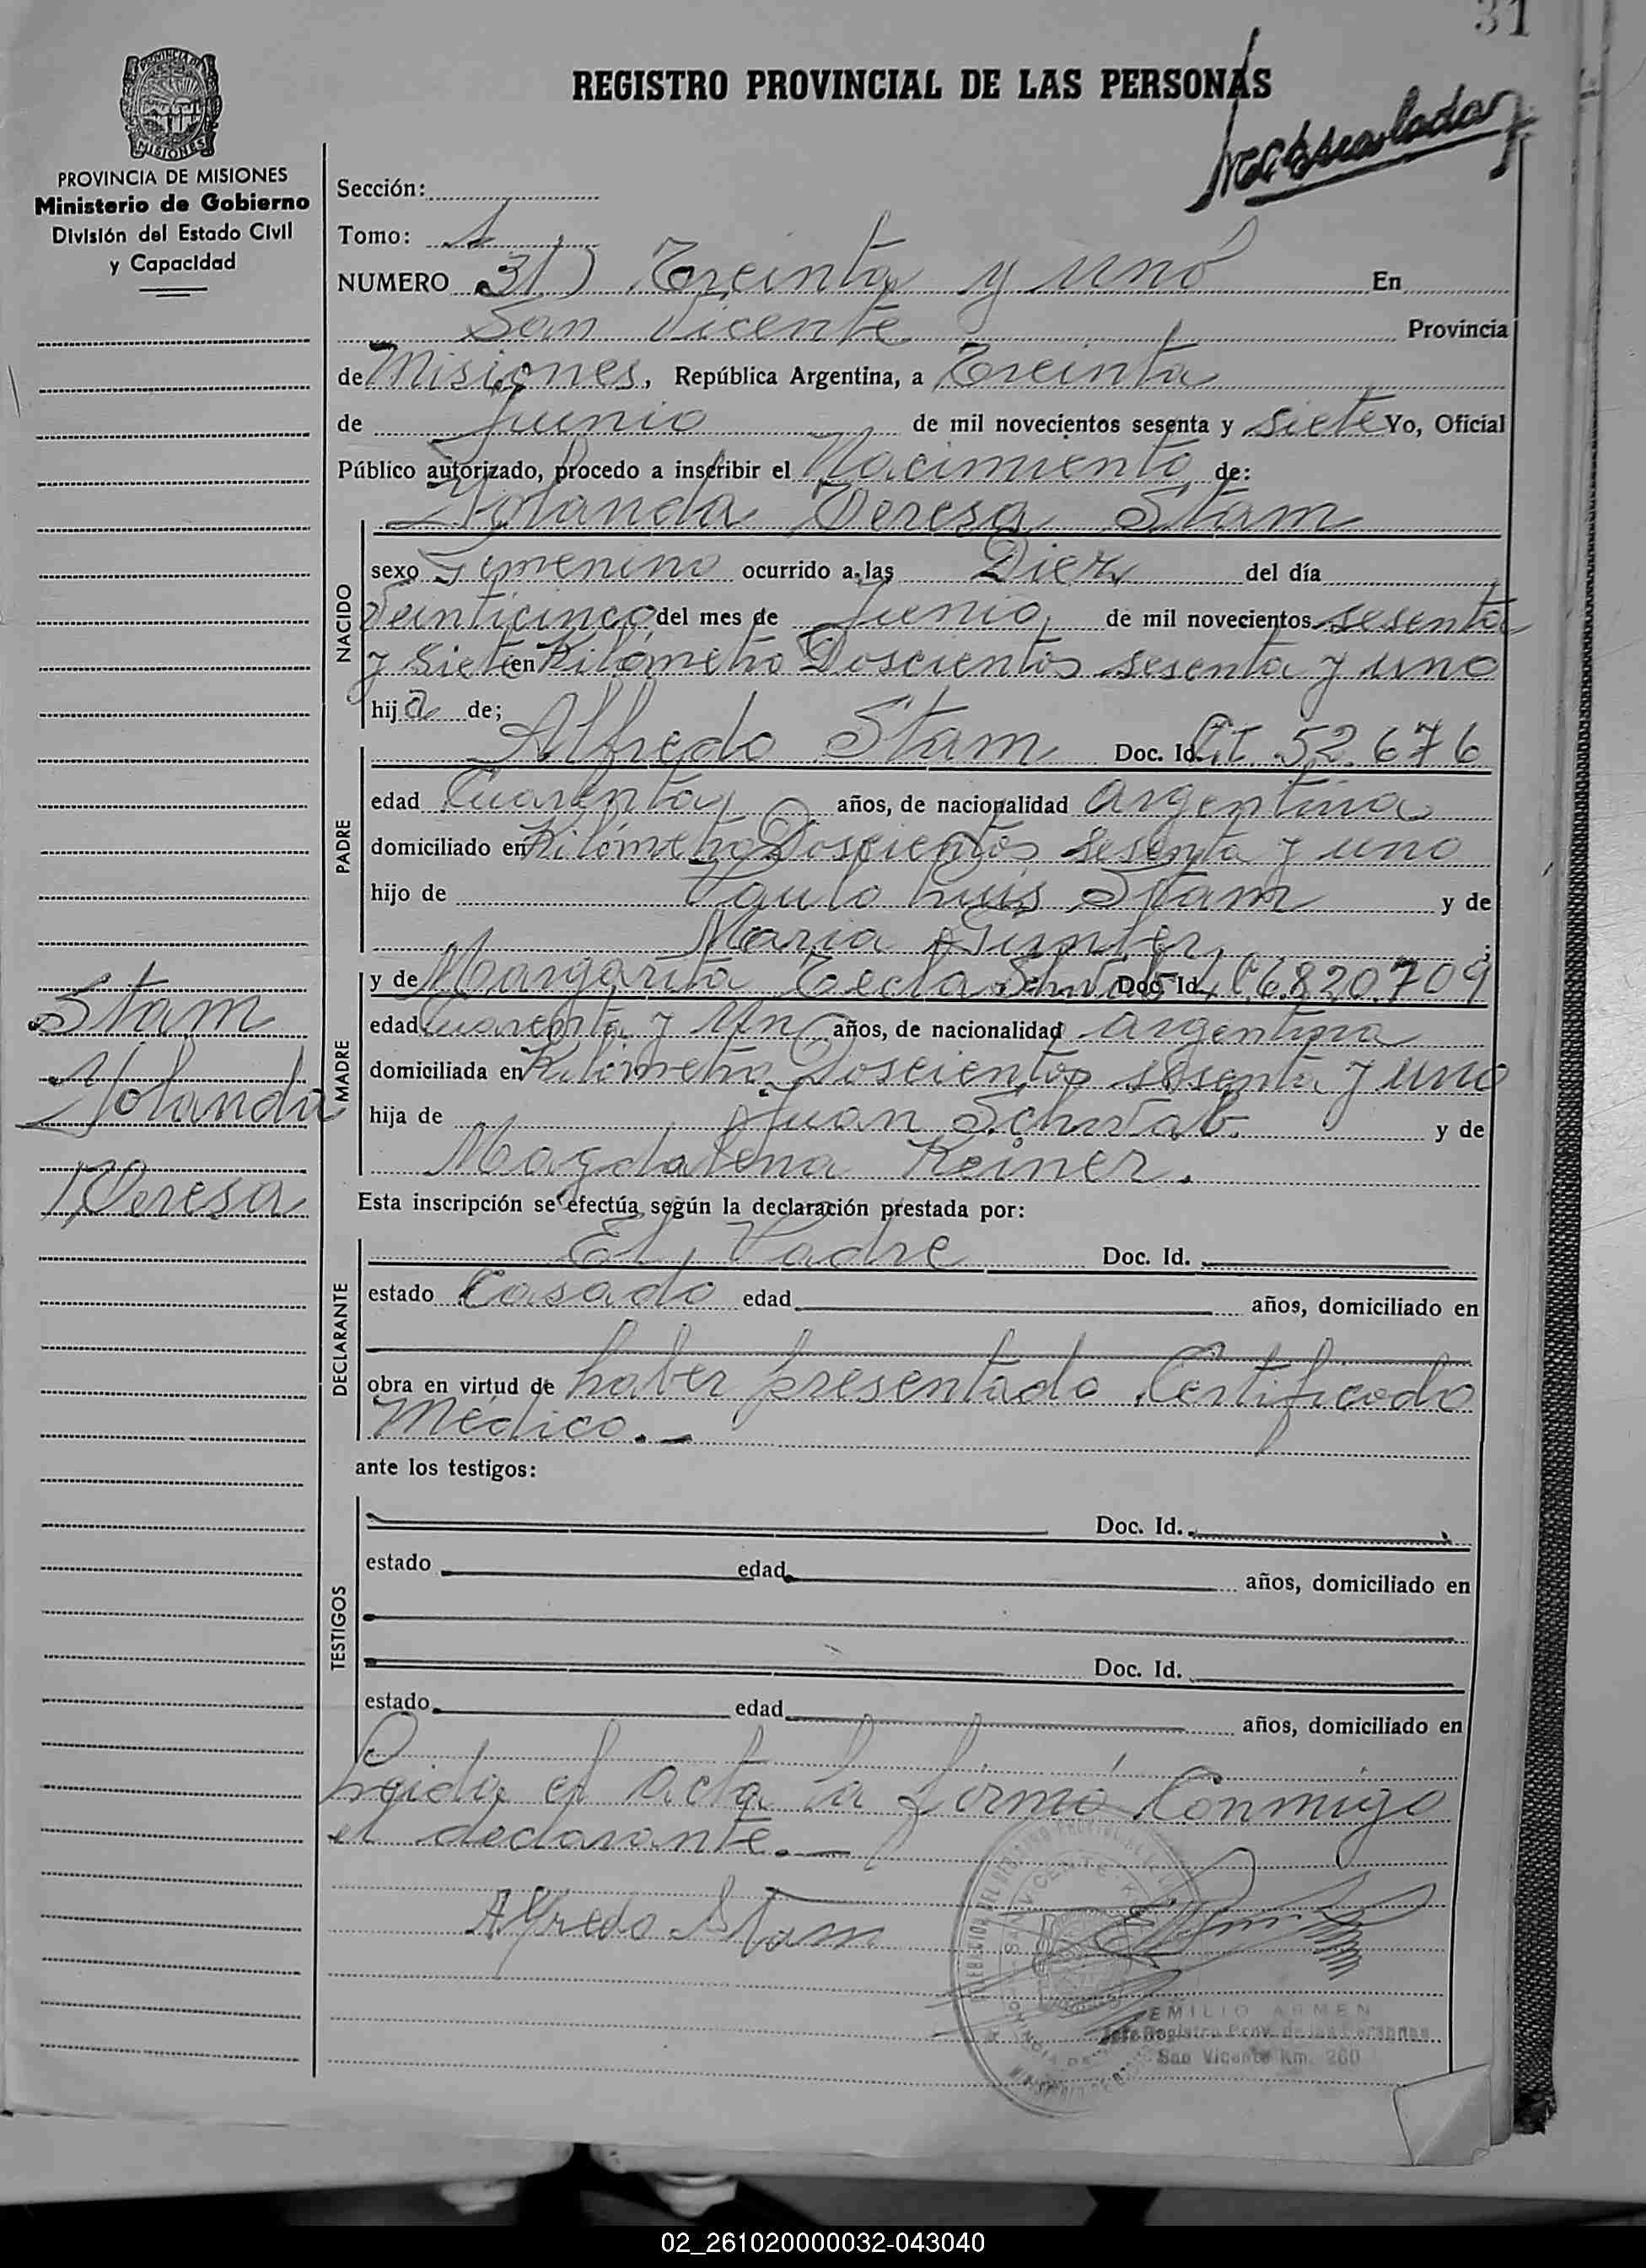 31
REGISTRO PROVINCIAL DE LAS PERSONAS
MISIONES
PROVINCIA DE MISIONES
Ministerio de Gobierno
División del Estado Civil
y Capacidad
Sección:
Tomo: 1
NUMERO 31) Treinta y uno En
San Vicente Provincia
de Misiones, República Argentina, a Treinta
de Junio de mil novecientos sesenta y siete Yo, Oficial
Público autorizado, procedo a inscribir el Nacimiento de:
Yolanda Teresa Stam
NACIDO
sexo Femenino ocurrido a las Diez del día
Veinticinco del mes de Junio, de mil novecientos sesenta
y siete en Kilómetro Doscientos sesenta y uno
hija de;
Alfredo Stam Doc. Id. C.I. 52.676
PADRE
edad Cuarenta años, de nacionalidad argentina
domiciliado en Kilómetro Doscientos sesenta y uno
hijo de Paulo Luis Stam y de
Maria ;
y de Margarita Tecla Schwab Doc. Id. L.C 6.820.709
MADRE
edad Cuarenta y Un años, de nacionalidad argentina
domiciliada en Kilómetro Doscientos sesenta y uno
hija de Juan Schwab. y de
Magdalena Reiner.
Stam
Yolanda
Teresa
Esta inscripción se efectúa según la declaración prestada por:
El Padre Doc. Id.
DECLARANTE
estado Casado edad años, domiciliado en
obra en virtud de haber presentado Certificado
Médico.-
ante los testigos:
TESTIGOS
Doc. Id.
estado edad años, domiciliado en
Doc. Id.
estado edad años, domiciliado en
Leida el acta la firmó Conmigo
el declarante.-
Alfredo Stam
EMILIO ARMEN
Jefe Registro Prov. de las Personas
San Vicente Km. 260
02_261020000032-043040